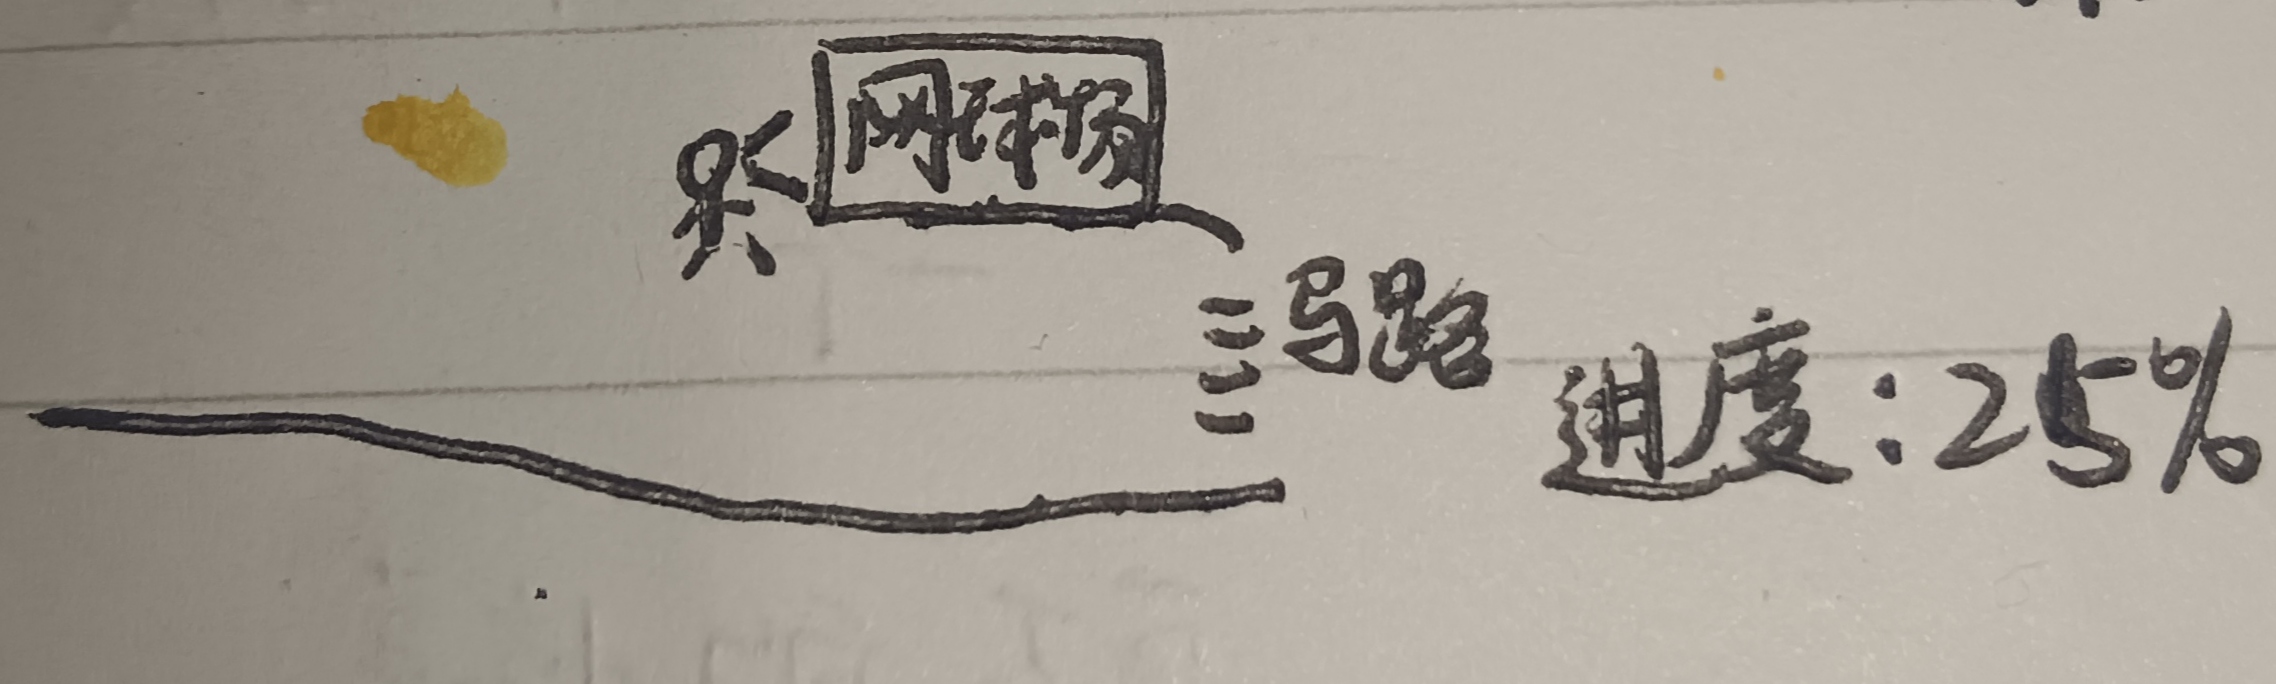 网球场
马路
进度:25%